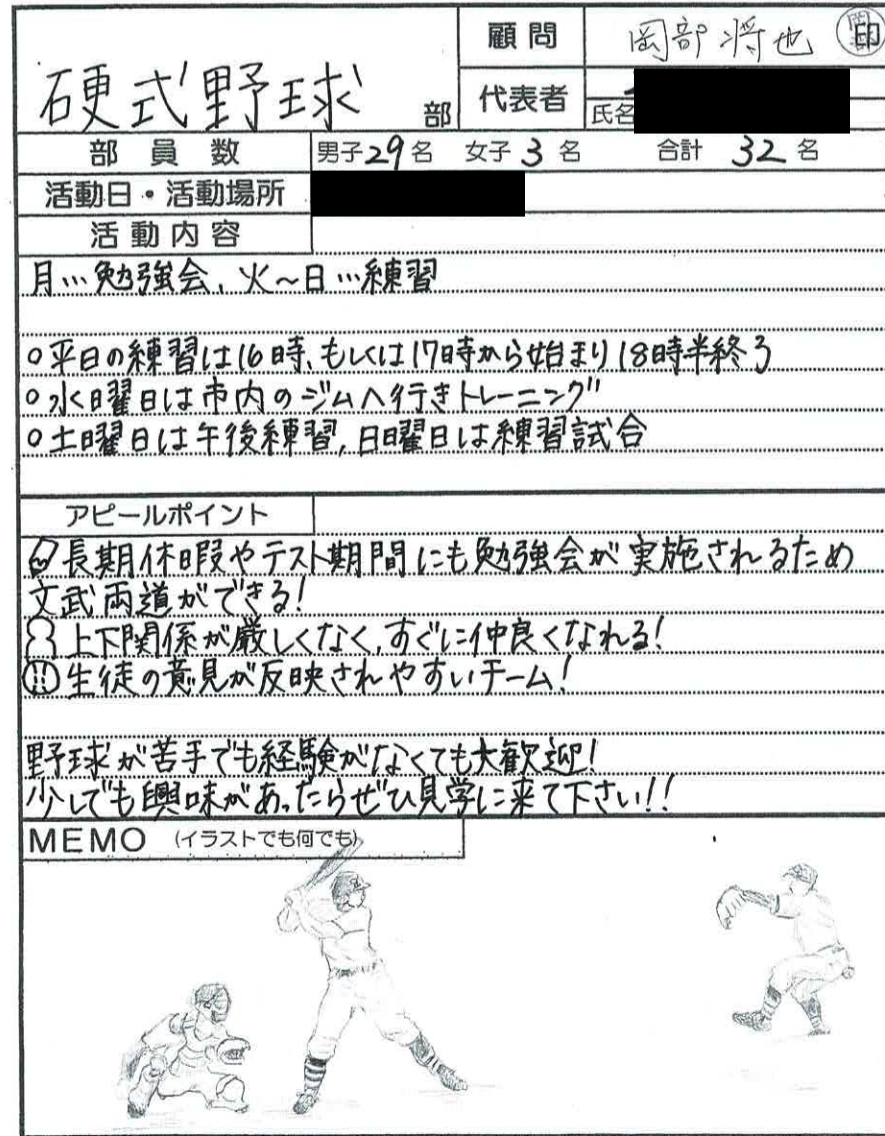 硬式野球 部
顧問 岡部将也 印
代表者 氏名
部員数 男子29名 女子3名 合計 32名
活動日・活動場所
活動内容
月…勉強会、火～日…練習
○平日の練習は16時、もしくは17時から始まり18時半終了
○水曜日は市内のジムへ行きトレーニング
○土曜日は午後練習,日曜日は練習試合
アピールポイント
長期休暇やテスト期間にも勉強会が実施されるため
文武両道ができる!
上下関係が厳しくなく,すぐに仲良くなれる!
生徒の意見が反映されやすいチーム!
野球が苦手でも経験がなくても大歓迎!
少しでも興味があったらぜひ見学に来て下さい!!
MEMO (イラストでも何でも)